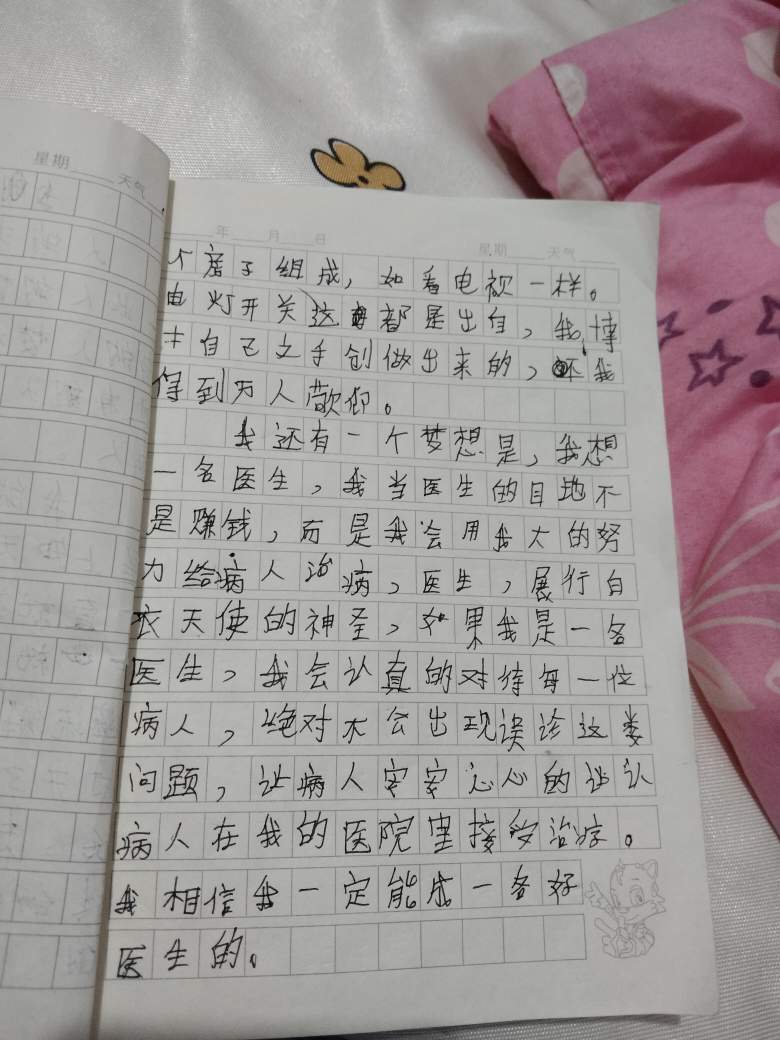 星期 天气
年 月 日 星期 天气
个房子组成，如看电视一样。
电灯开关这都是出自，我，博
士自己文手创做出来的，还我
得到万人敬仰。
我还有一个梦想是，我想
一名医生，我当医生的目地不
是赚钱，而是我会用我大的努
力给病人治病，医生，展行白
衣天使的神圣，如果我是一名
医生，我会认真的对待每一位
病人，绝对不会出现误诊这类
问题，让病人安安心心的让认
病人在我的医院里接受治疗。
我相信我一定能成一名好
医生的。